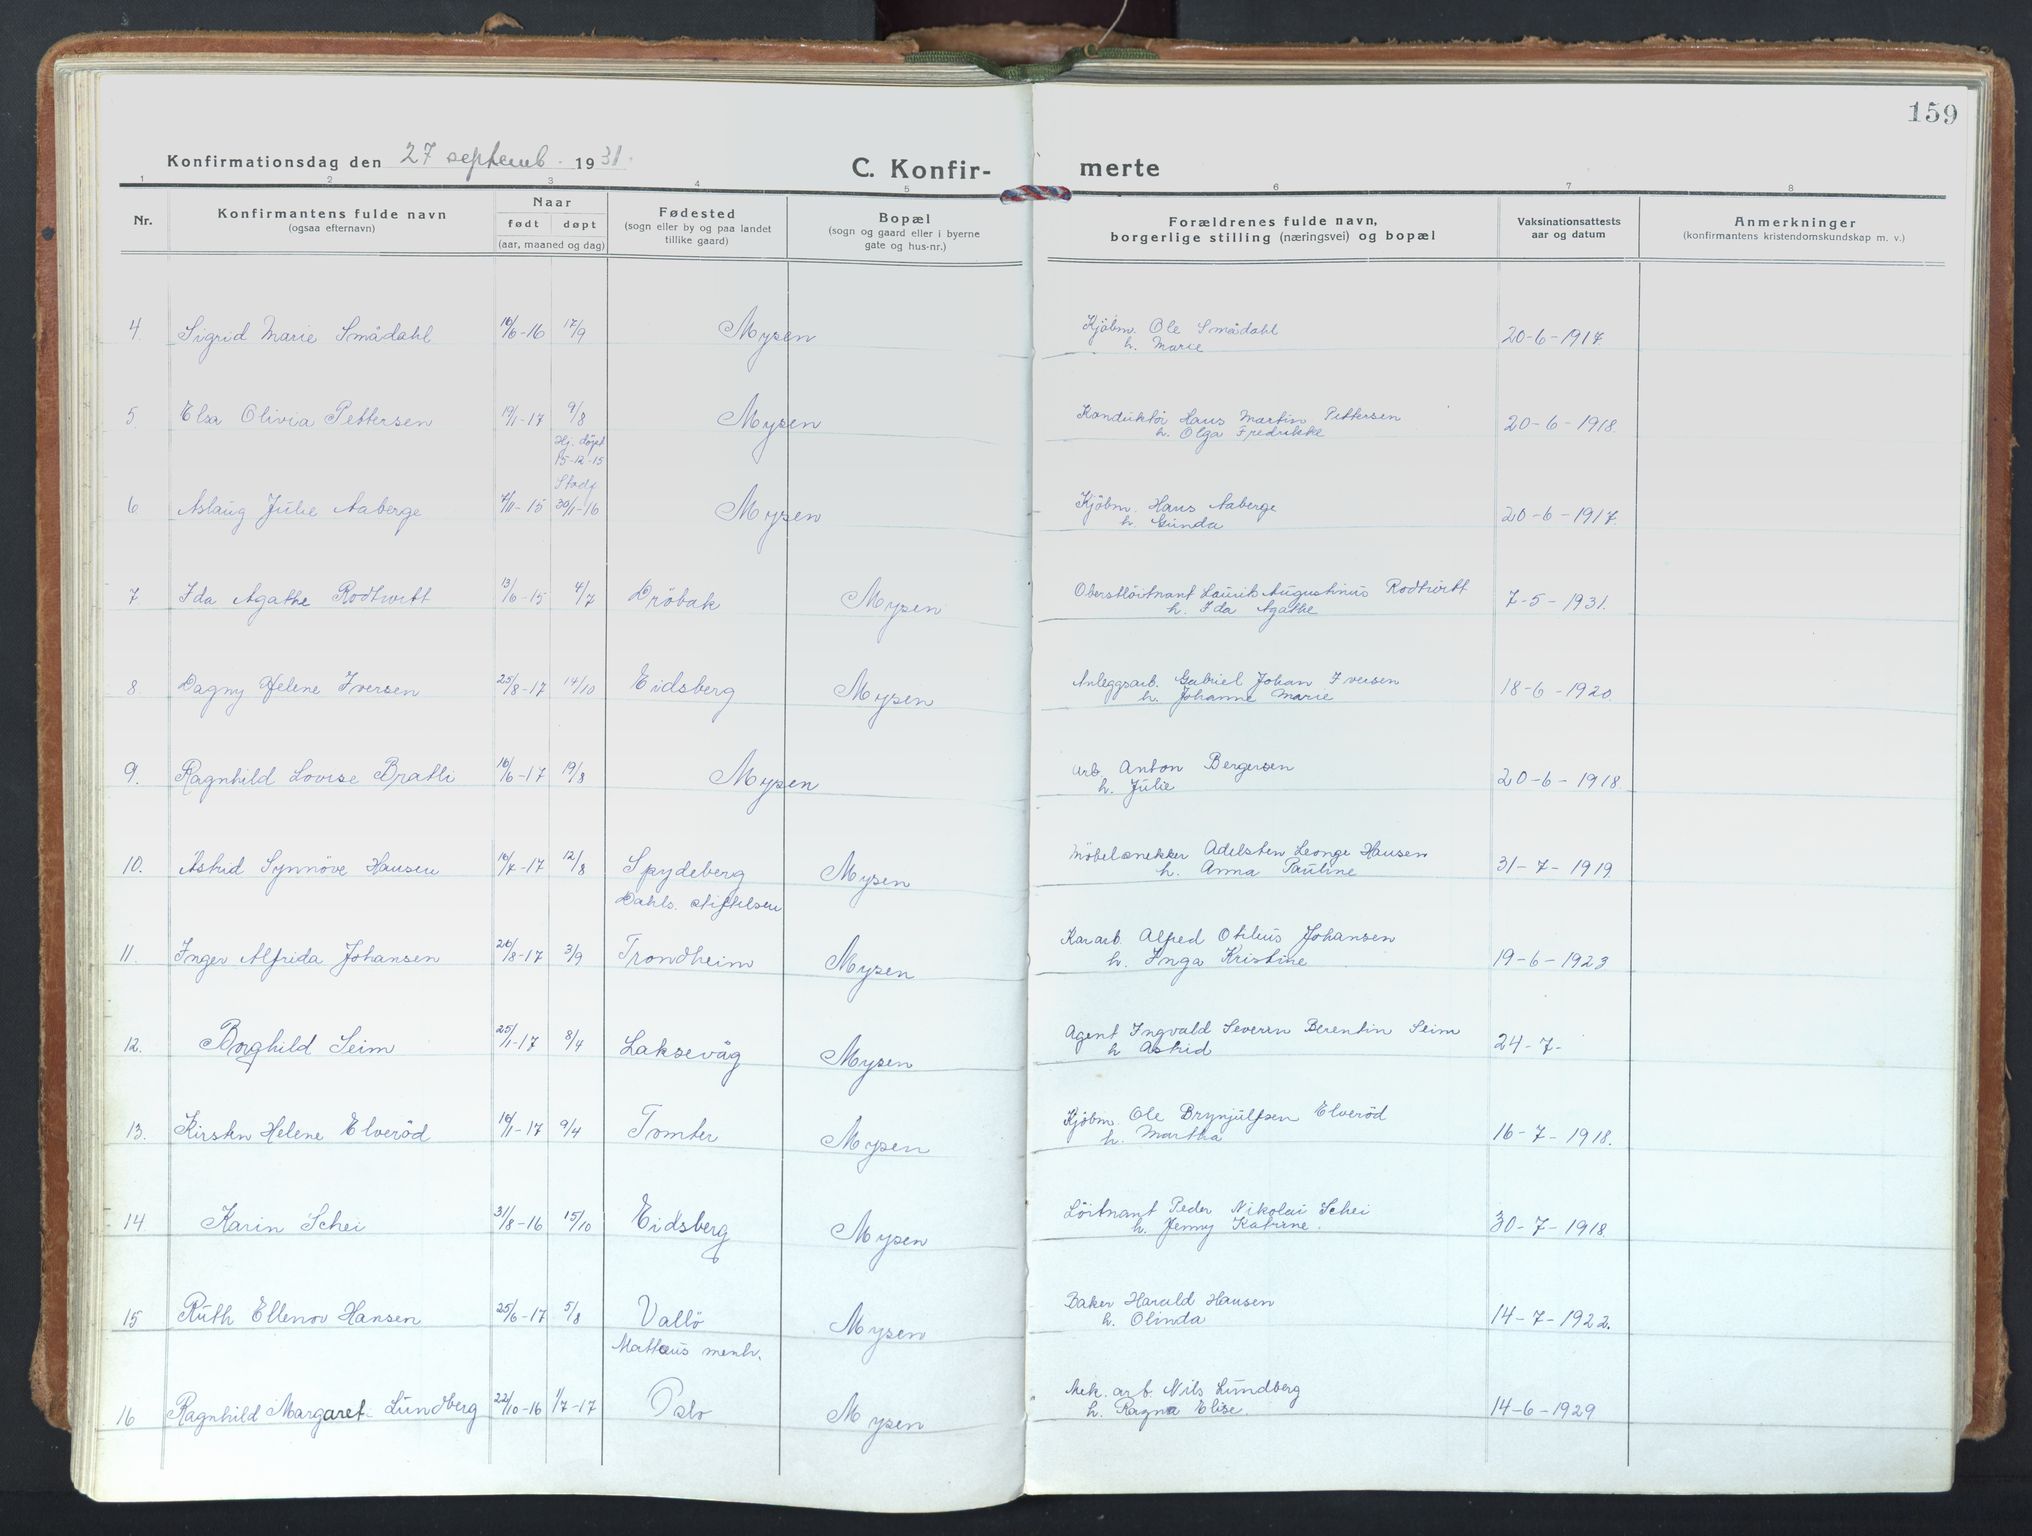 159
Konfirmationsdag den 27 septemb. 1931.
C. Konfir- merte
1 2 3 4 5 6 7 8
Nr.
Konfirmantens fulde navn
(ogsaa efternavn)
Naar
født døpt
(aar, maaned og dag)
Fødested
(sogn eller by og paa landet
tillike gaard)
Bopæl
(sogn og gaard eller i byerne
gate og hus-nr.)
Forældrenes fulde navn,
borgerlige stilling (næringsvei) og bopæl
Vaksinationsattests
aar og datum
Anmerkninger
(konfirmantens kristendomskundskap m. v.)
4 Sigrid Marie Smådahl 16/6-16 17/9 Mysen Kjöbm. Ole Smådahl 20-6-1917.
h. Marie
5 Elsa Olivia Pettersen 19/1-17 9/8 Mysen Konduktör Hans Martin Pettersen 20-6-1918.
h. Olga Fredrikke
Hj. döpt
15-12-15
Stadf
6 Aslaug Julie Aaberge 7/11-15 30/1-16 Mysen Kjöbm. Hans Aaberge 20-6-1917.
h. Gunda
7 Ida Agathe Rodtwitt 13/6-15 4/7 Dröbak Mysen Oberstlöitnant Laurik Augustinus Rodtwitt 7-5-1931.
h. Ida Agathe
8. Dagny Helene Iversen 25/8-17 14/10 Eidsberg Mysen Anleggsarb. Gabriel Johan Iversen 18-6-1920.
h. Johanne Marie
9. Ragnhild Lovise Bratli 16/6-17 19/8 Mysen arb. Anton Bergersen 20-6-1918.
h. Julie
10. Astrid Synnöve Hansen 16/7-17 12/8 Spydeberg Mysen Möbelsnekker Adelsten Leonge Hansen 31-7-1919
h. Anna Pauline
Dahls. stiftelsen
11. Inger Alfrida Johansen 26/8-17 3/9 Trondheim Mysen Kararb. Alfred Othlius Johansen 19-6-1923
h. Inga Kristine
12. Borghild Seim 25/1-17 8/4 Laksevåg Mysen Agent Ingvald Severin Berentin Seim 24-7-
h Astrid
13. Kirsten Helene Elveröd 16/1-17 9/4 Tomter Mysen Kjöbm. Ole Brynjulfsen Elveröd 16-7-1918.
h. Martha
14. Karin Schei 31/8-16 15/10 Eidsberg Mysen Löitnant Peder Nikolai Schei 30-7-1918.
h. Jenny Katrine.
15 Ruth Ellenor Hansen 25/6-17 5/8 Vallö Mysen Baker Harald Hansen 14-7-1922.
h. Olinda
Matteus menh.
16 Ragnhild Margaret Lundberg 22/10-16 1/7-17 Oslo Mysen Mek. arb. Nils Lundberg 14-6-1929
h. Ragna Elise.